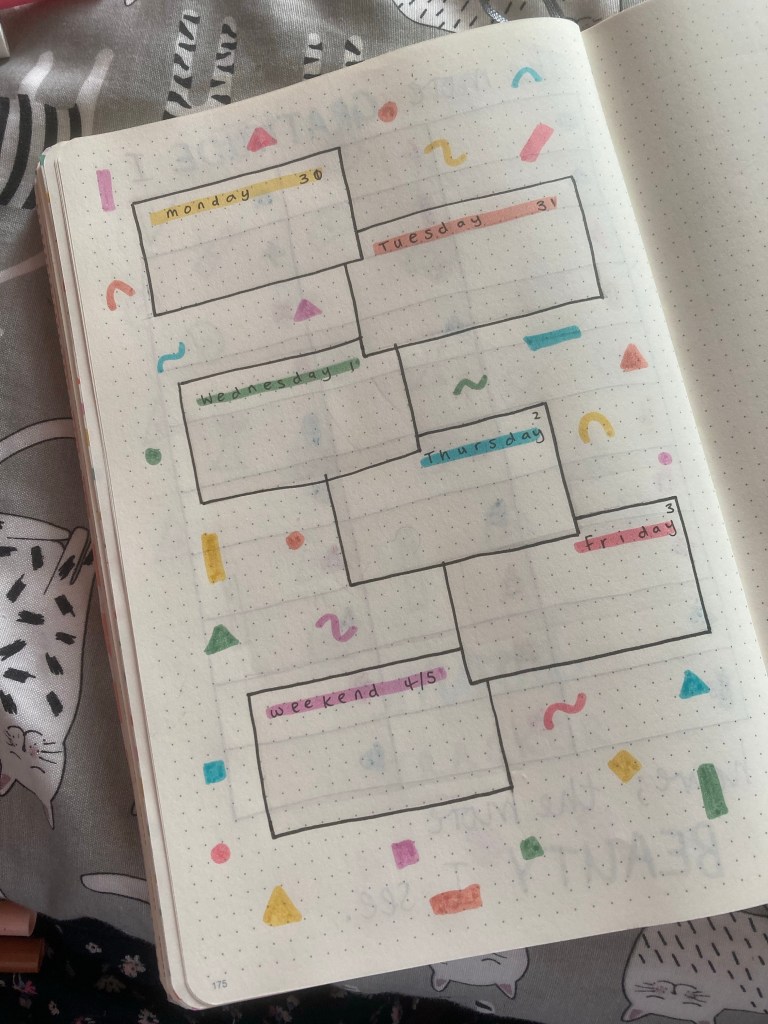 monday 30
Tuesday 31
Wednesday 1
2
Thursday
3
Friday
weekend 4/5
175